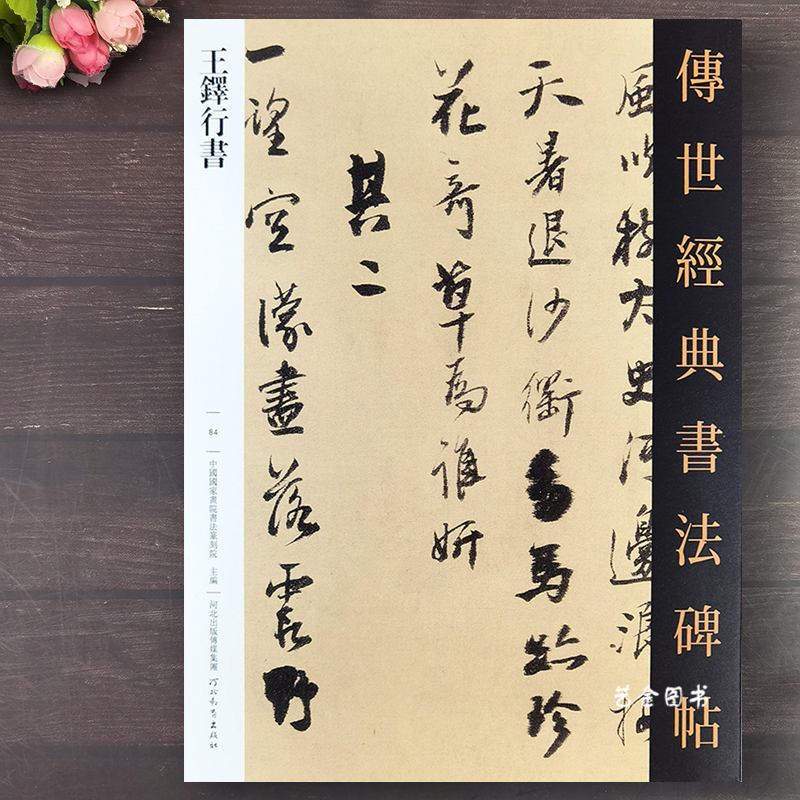 傳世經典書法碑帖
風吹太史河邊浪
天暑退沙衢馬珍
花奇草為誰妍
其二
一望空濛落野
王鐸行書
84
中國國家畫院書法篆刻院 主編
河北出版傳媒集團
河北教育出版社
艺金图书